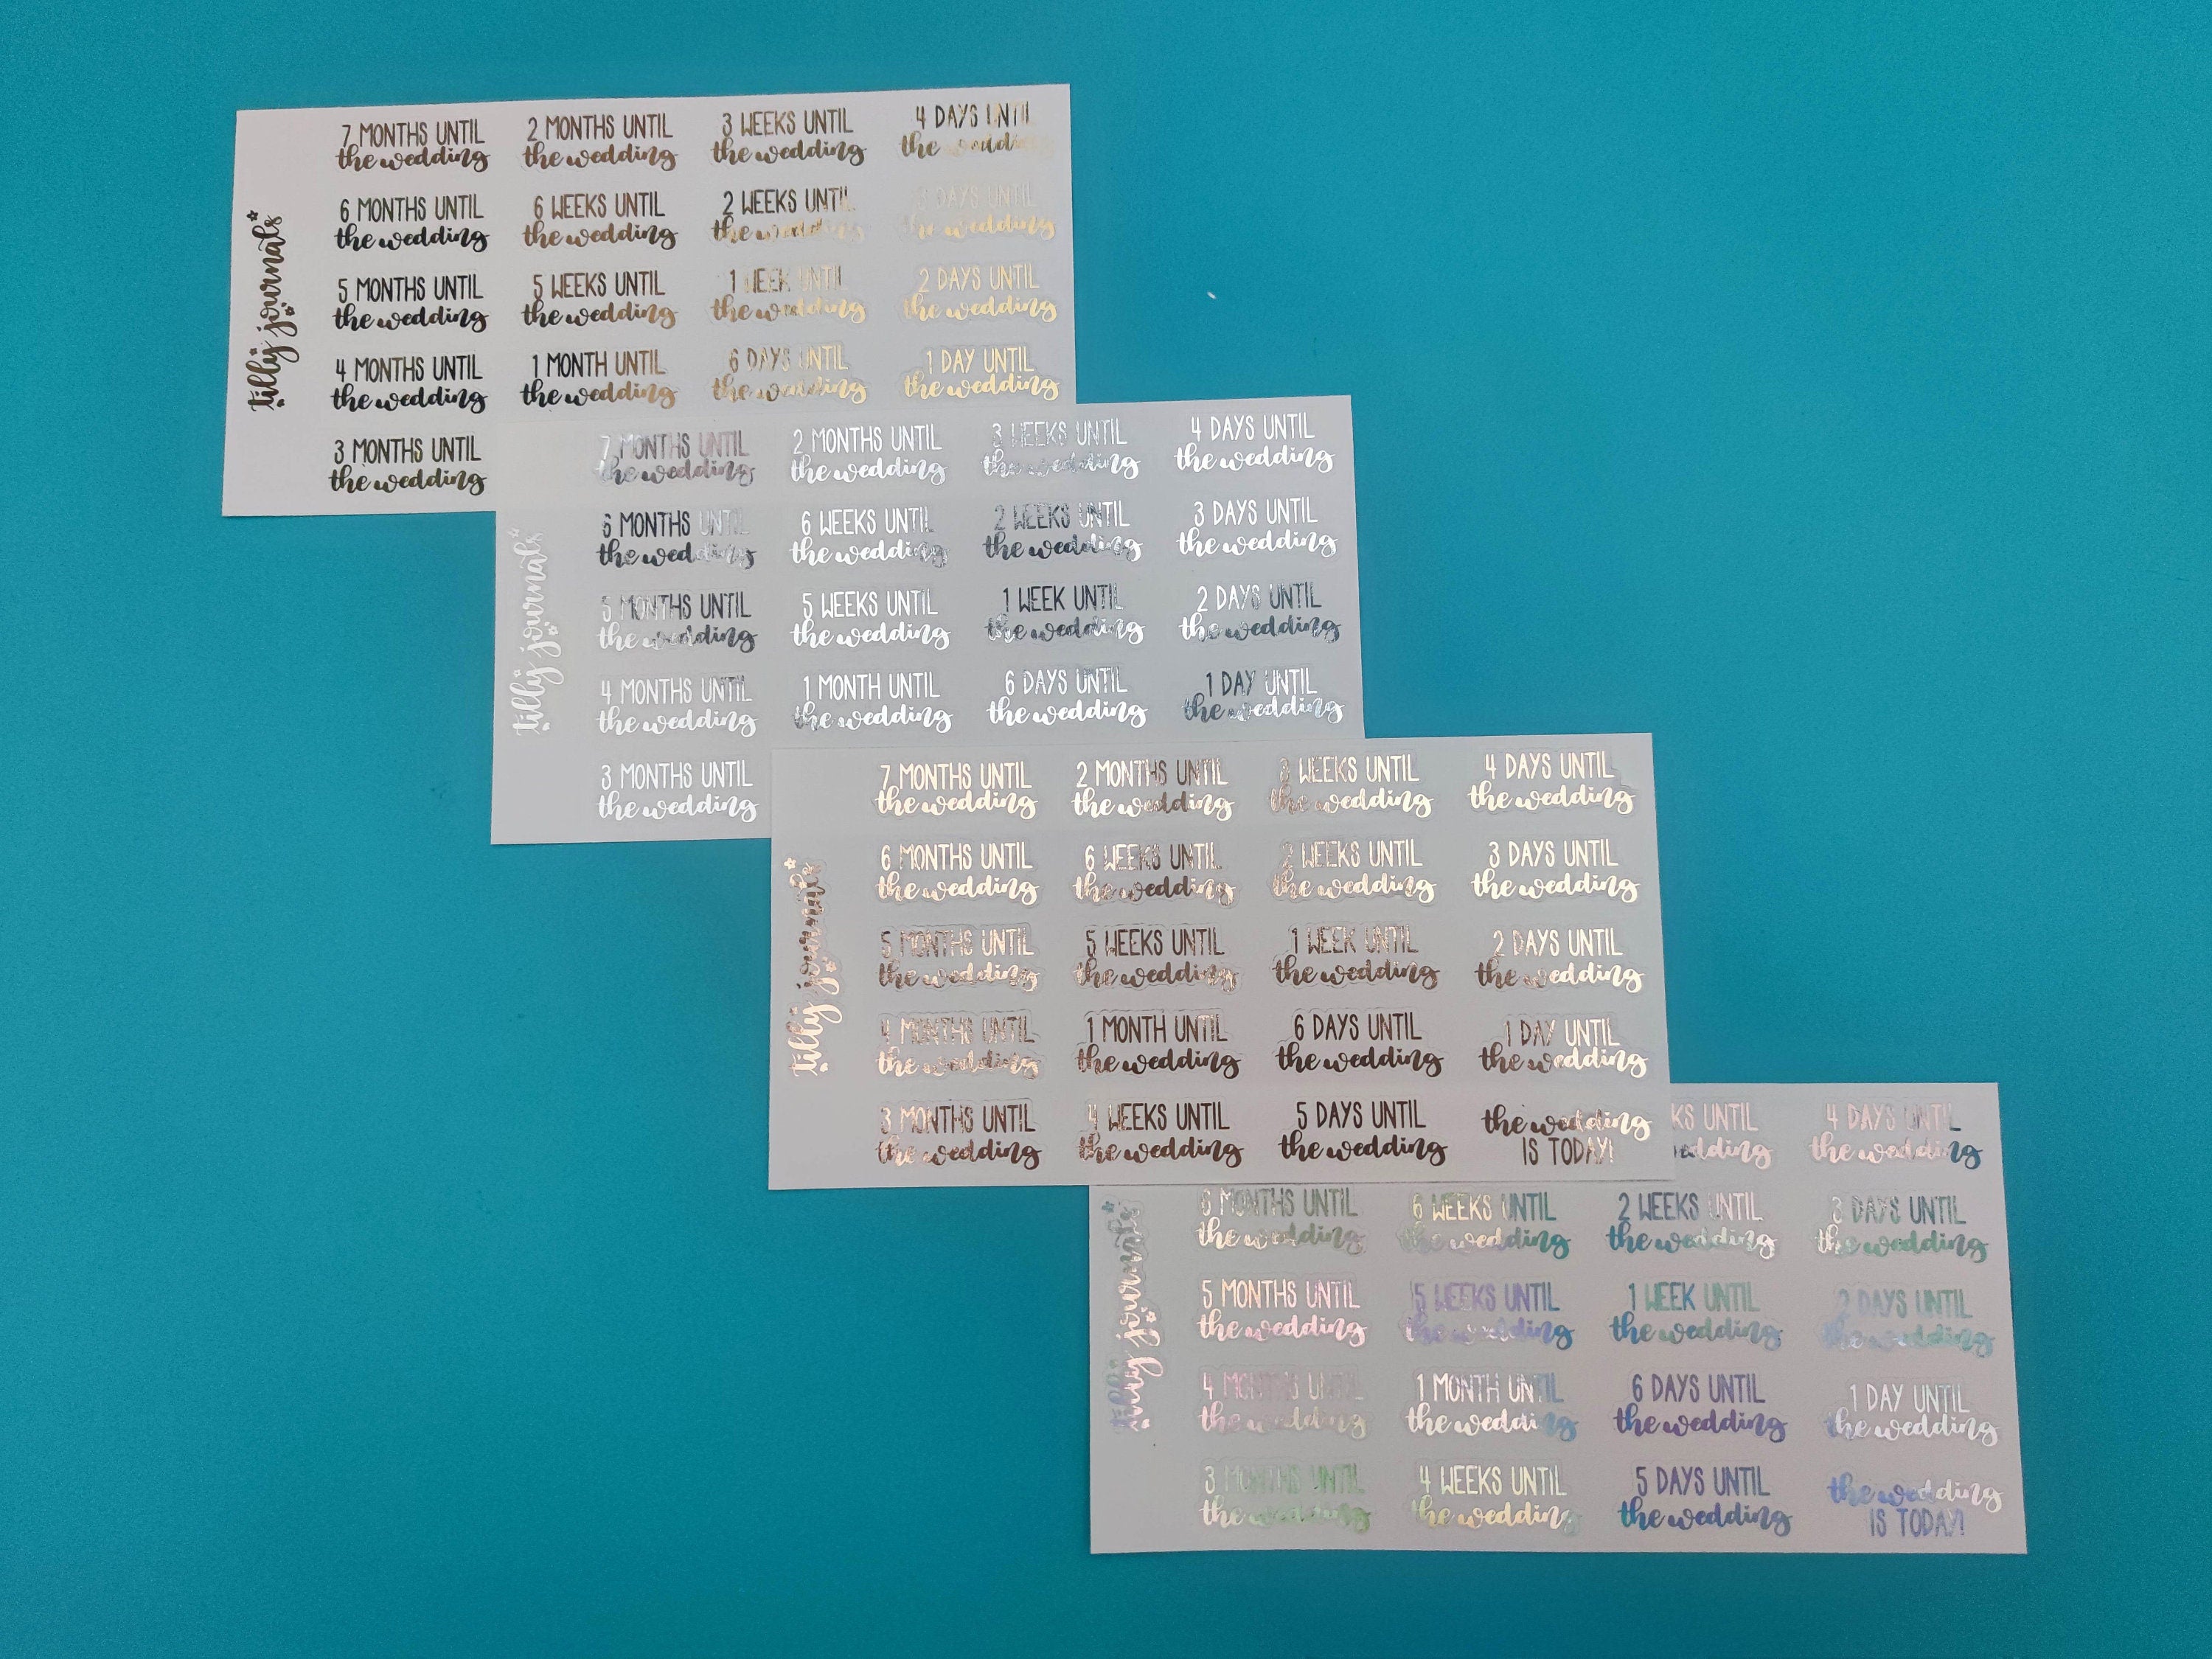 tilly journals
7 MONTHS UNTIL
the wedding
2 MONTHS UNTIL
the wedding
3 WEEKS UNTIL
the wedding
4 DAYS UNTIL
the wedding
6 MONTHS UNTIL
the wedding
6 WEEKS UNTIL
the wedding
2 WEEKS UNTIL
the wedding
3 DAYS UNTIL
the wedding
5 MONTHS UNTIL
the wedding
5 WEEKS UNTIL
the wedding
1 WEEK UNTIL
the wedding
2 DAYS UNTIL
the wedding
4 MONTHS UNTIL
the wedding
1 MONTH UNTIL
the wedding
6 DAYS UNTIL
the wedding
1 DAY UNTIL
the wedding
3 MONTHS UNTIL
the wedding
tilly journals
7 MONTHS UNTIL
the wedding
2 MONTHS UNTIL
the wedding
3 WEEKS UNTIL
the wedding
4 DAYS UNTIL
the wedding
6 MONTHS UNTIL
the wedding
6 WEEKS UNTIL
the wedding
2 WEEKS UNTIL
the wedding
3 DAYS UNTIL
the wedding
5 MONTHS UNTIL
the wedding
5 WEEKS UNTIL
the wedding
1 WEEK UNTIL
the wedding
2 DAYS UNTIL
the wedding
4 MONTHS UNTIL
the wedding
1 MONTH UNTIL
the wedding
6 DAYS UNTIL
the wedding
1 DAY UNTIL
the wedding
3 MONTHS UNTIL
the wedding
tilly journals
7 MONTHS UNTIL
the wedding
2 MONTHS UNTIL
the wedding
3 WEEKS UNTIL
the wedding
4 DAYS UNTIL
the wedding
6 MONTHS UNTIL
the wedding
6 WEEKS UNTIL
the wedding
2 WEEKS UNTIL
the wedding
3 DAYS UNTIL
the wedding
5 MONTHS UNTIL
the wedding
5 WEEKS UNTIL
the wedding
1 WEEK UNTIL
the wedding
2 DAYS UNTIL
the wedding
4 MONTHS UNTIL
the wedding
1 MONTH UNTIL
the wedding
6 DAYS UNTIL
the wedding
1 DAY UNTIL
the wedding
3 MONTHS UNTIL
the wedding
4 WEEKS UNTIL
the wedding
5 DAYS UNTIL
the wedding
the wedding
IS TODAY!
tilly journals
UNTIL
wedding
4 DAYS UNTIL
the wedding
6 MONTHS UNTIL
the wedding
6 WEEKS UNTIL
the wedding
2 WEEKS UNTIL
the wedding
3 DAYS UNTIL
the wedding
5 MONTHS UNTIL
the wedding
5 WEEKS UNTIL
the wedding
1 WEEK UNTIL
the wedding
2 DAYS UNTIL
the wedding
4 MONTHS UNTIL
the wedding
1 MONTH UNTIL
the wedding
6 DAYS UNTIL
the wedding
1 DAY UNTIL
the wedding
3 MONTHS UNTIL
the wedding
4 WEEKS UNTIL
the wedding
5 DAYS UNTIL
the wedding
the wedding
IS TODAY!